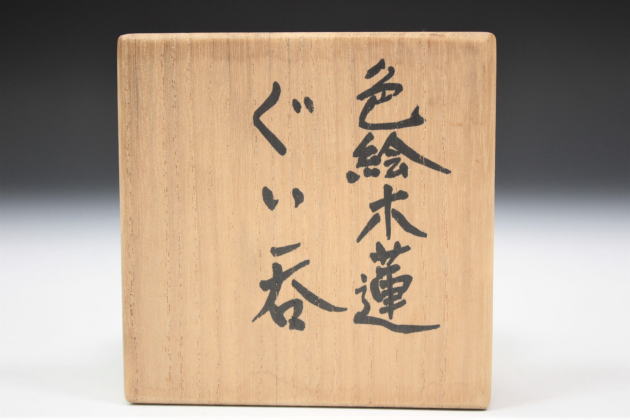 色絵木蓮
ぐい呑